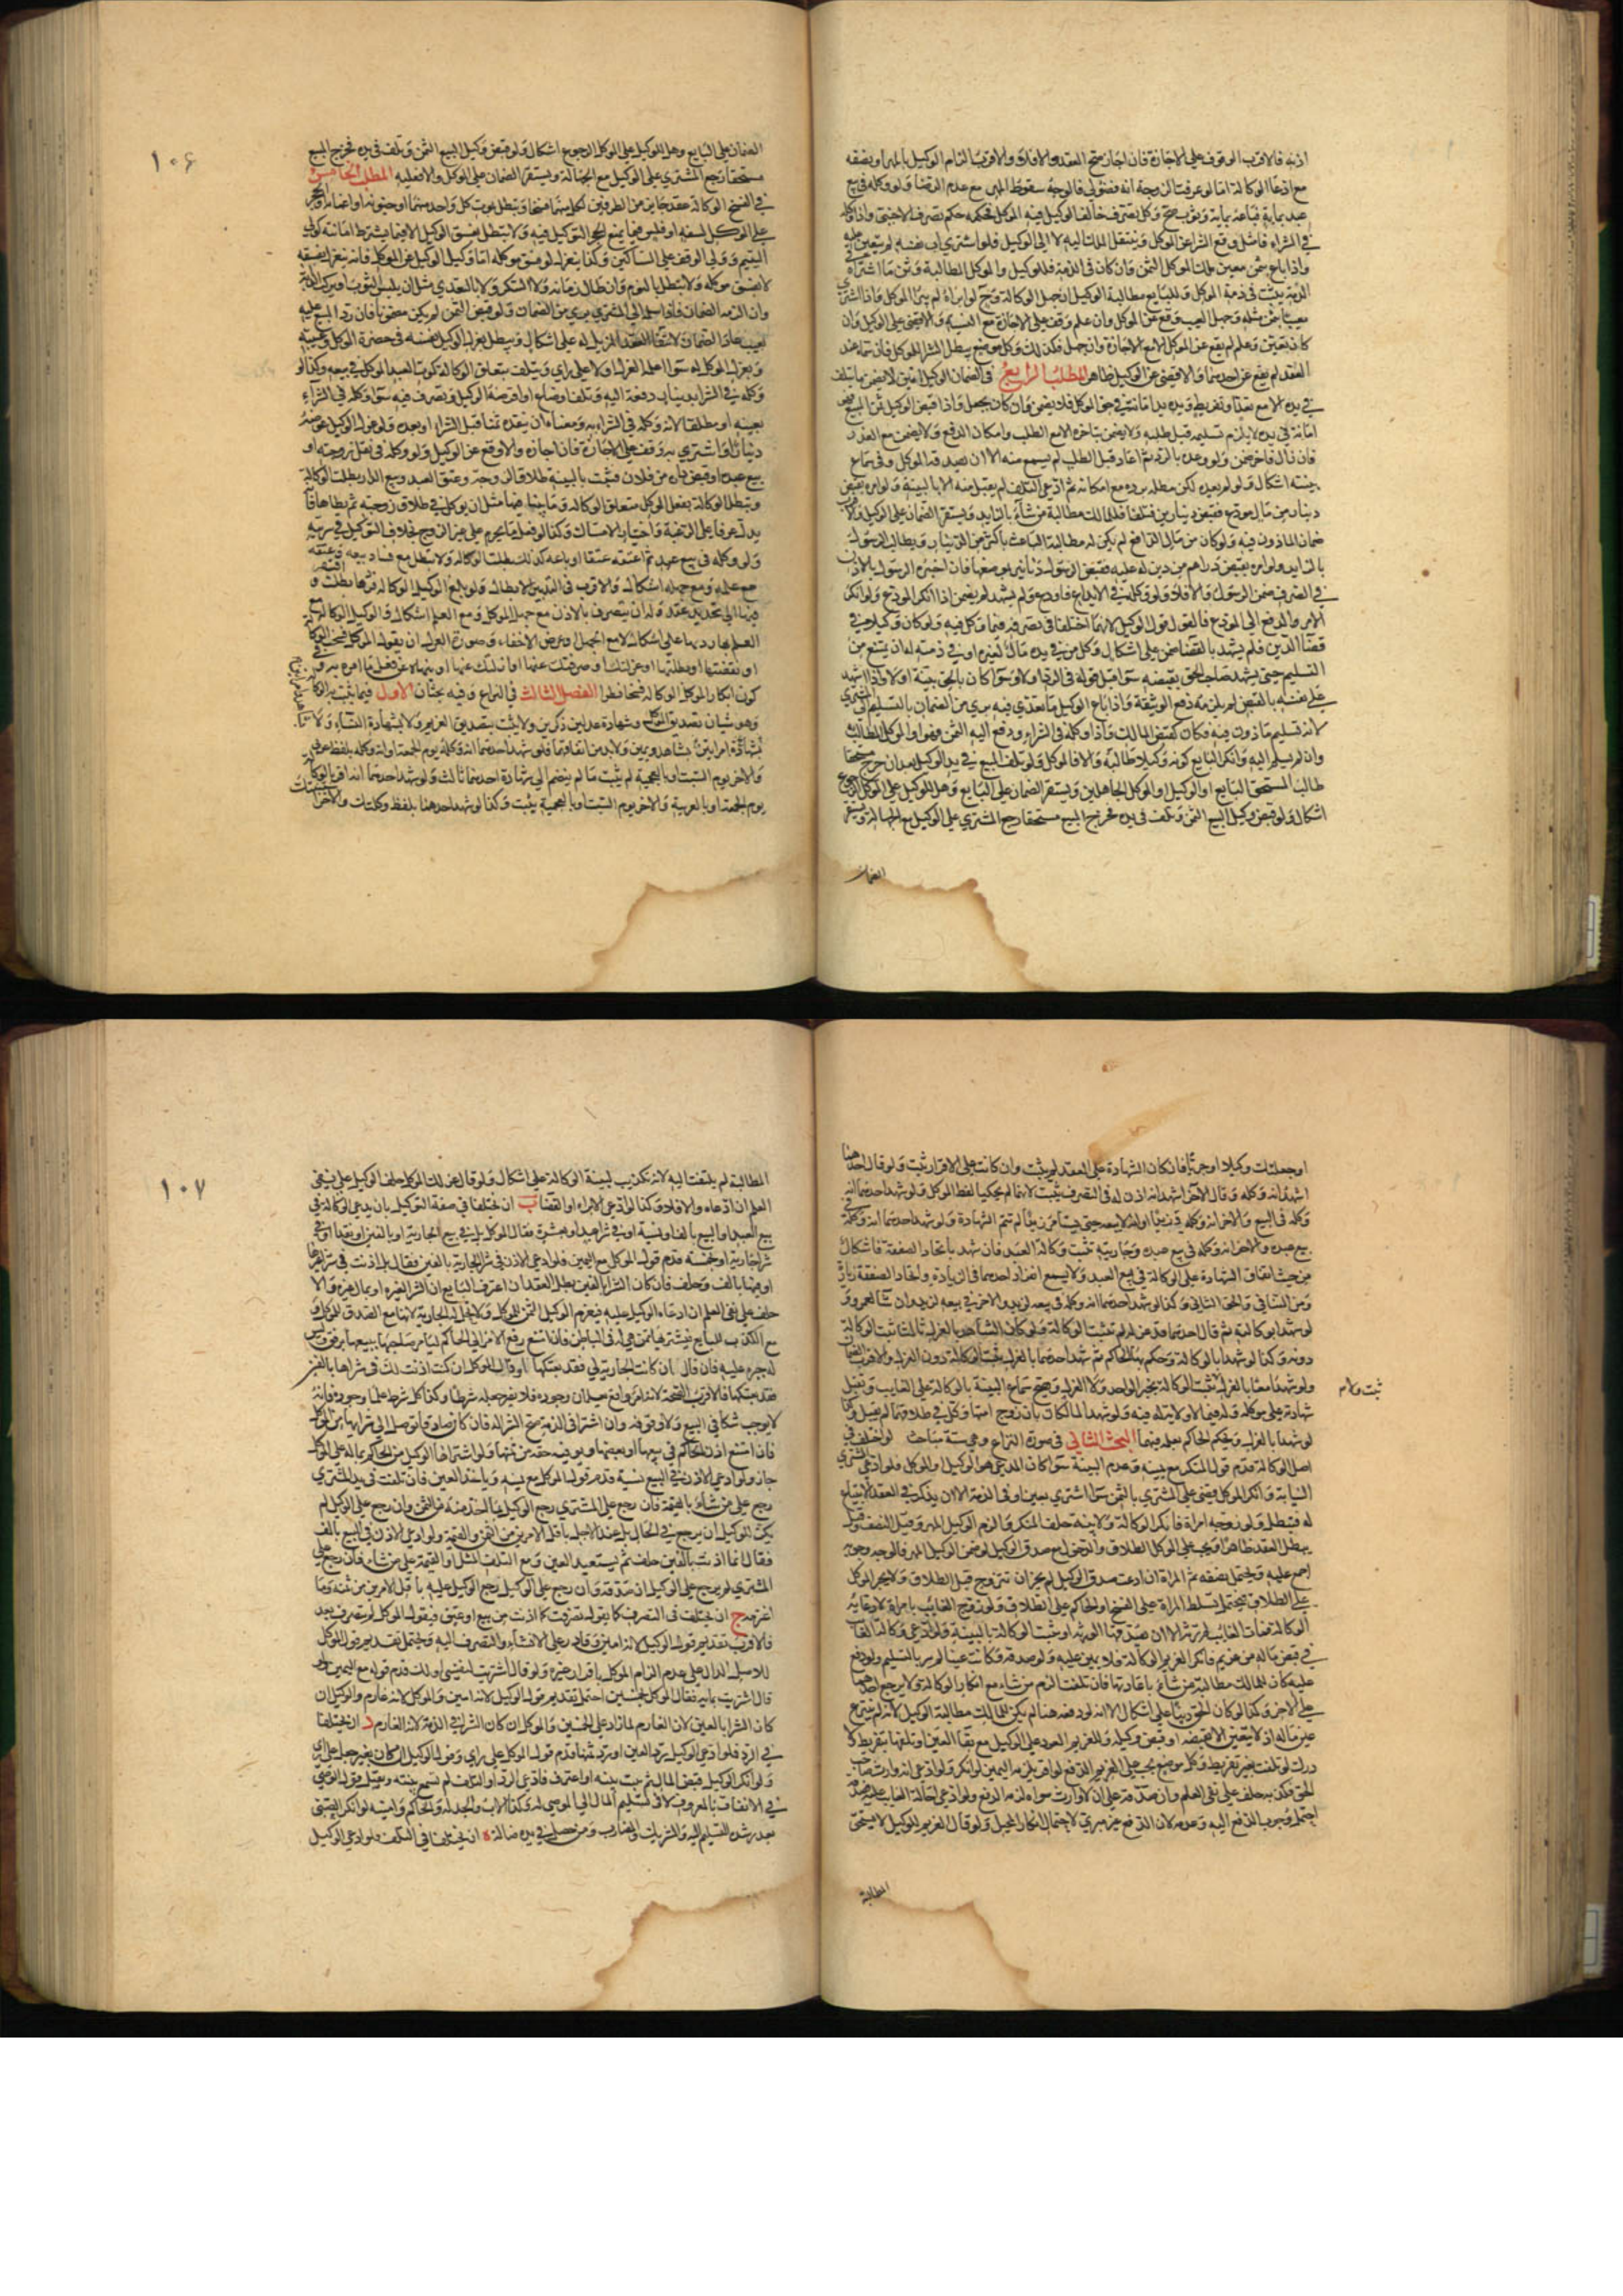 اذنه فالاقرب الوقوف على الاجازة فان اجاز صح العقد والا فلا والاقرب الزام الوكيل بالمهر او نصفه
مع ادعا الوكالة اما لو عرفت الزوجة انه فضولي فالوجه سقوط المهر مع عدم الرضا ولو وكله في بيع
عبد بماية فباعه بماية وثوب صح وكل تصرف خالف الوكيل فيه الموكل فحكمه حكم تصرف الاجنبي واذا وكله
في الشراء فامتثل وقع الشراء عن الموكل وينتقل الملك اليه لا الى الوكيل فلو اشترى اب نفسه لم ينعتق عليه
واذا باع بثمن معين ملك الموكل الثمن وان كان في الذمة فللوكيل والموكل المطالبة وثمن ما اشتراه في
الذمة يثبت في ذمة الموكل وللبايع مطالبة الوكيل ان جهل الوكالة و ح لو ابراه لم يبرا الموكل واذا اشترى
معيبا بثمن مثله وجهل العيب وقع عن الموكل وان علم وقف على الاجازة مع النسبة والا قضى على الوكيل وان
العقد لم يقع عن احدهما والا قضى عن الوكيل ظاهرا المطلب الرابع في الضمان الوكيل امين لا يضمن ما يتلف
في يده الا مع تعد او تفريط ويده يد امانة في حق الموكل فلا يضمن وان كان بجعل واذا قبض الوكيل ثمن المبيع فهو
امانة في يده لا يلزم تسليمه قبل طلبه ولا يضمن بتاخره الا مع الطلب وامكان الدفع ولا يضمن مع العذر
فان زال فاخر ضمن ولو وعده بالرد ثم ادعا قبل الطلب لم يسمع منه الا ان يصدقه الموكل وفي سماع
بينته اشكال ولو لم يعده لكن مطله برده مع امكانه ثم ادعى التلف لم يقبل منه الا بالبينة ولو امره بقبض
دينار من مال مودع فقبض دينارين فتلفا فللمالك مطالبة من شاء بالزايد ويستقر الضمان على الوكيل والاقرب
ضمان الماذون فيه ولو كان من مال الدافع لم يكن له مطالبة الباعث باكثر من الدينار ويطالب الرسول
بالزايد ولو امره بقبض دراهم من دين له عليه فقبض الرسول دنانير عوضها فان اخبره الرسول بالاذن
في الصرف ضمن الرسول والا فلا ولو وكله في الايداع فاودع ولم يشهد لم يضمن اذا انكر المودع ولو انكر
الامر والدفع الى المودع فالقول قول الوكيل لانهما اختلفا في تصرفه فيما وكل فيه ولو كان وكيلا في
قضا الدين فلم يشهد بالقضا ضمن على اشكال وكل من في يده مال لغيره او في ذمته له ان يمتنع من
التسليم حتى يشهد صاحب الحق بقبضه سوا قبل قوله في الرد او لا وسوا كان بالحق بينة او لا واذا اشهد
على نفسه بالقبض لم يلزمه دفع الوثيقة واذا باع الوكيل ما تعدى فيه بري من الضمان بالتسليم الى المشتري
لانه تسليم ماذون فيه فكان كقبض المالك واذا وكله في الشراء ودفع اليه الثمن فهو او الموكل المطالب
وان لم يسلم اليه وانكر البايع كونه وكيلا طالبه والا فالموكل ولو تلف المبيع في يد الوكيل بعد ان خرج مستحقا
طالب المستحق البايع او الوكيل او الموكل الجاهلين ويستقر الضمان على البايع وهل للوكيل على الموكل الرجوع
اشكال ولو قبض وكيل البيع الثمن وتلف في يده فخرج المبيع مستحقا رجع المشتري على الوكيل مع الجهالة ويستقر
الضمان
١٠٦
الضمان على البايع وهل للوكيل على الموكل الرجوع اشكال ولو قبض وكيل البيع الثمن وتلف في يده فخرج المبيع
مستحقا رجع المشتري على الوكيل مع الجهالة ويستقر الضمان على الموكل والا فعليه المطلب الخامس
في الفسخ الوكالة عقد جايز من الطرفين لكل منهما فسخها وتبطل بموت كل واحد منهما او جنونه او اغمائه والحجر
على الموكل لسفه او فلس فيما يمنع الحجر التوكيل فيه ولا يبطل بفسق الوكيل الا فيما يشترط امانته كولي
اليتيم وولي الوقف على المساكين وكذا ينعزل لو فسق موكله اما وكيل الوكيل عن الموكل فانه ينعزل بفسقه
لا بفسق موكله ولا تبطل بالنوم وان طال زمانه ولا السكر ولا بالتعدي مثل ان يلبس الثوب او يركب الدابة
وان لزمه الضمان فاذا سلمه الى المشتري بري من الضمان ولو قبض الثمن لم يكن مضمونا فان رد المبيع عليه
بعيب عاد الضمان لانتفا العقد المزيل له على اشكال ويبطل بعزل الوكيل نفسه في حضرة الموكل وغيبته
وبعزل الموكل له سوا اعلمه العزل او لا على راي وبتلف متعلق الوكالة كموت العبد الموكل في بيعه وكذا لو
وكله في الشراء بدينار دفعه اليه وتلف او ضاع او اقترضه الوكيل وتصرف فيه سوا وكله في الشراء
بعينه او مطلقا لانه وكله في الشراء به ومعناه ان ينقده ثمنا قبل الشراء او بعده ولو عزل الوكيل عوضه
دينارا واشترى به وقف على الاجازة فان اجازه والا وقع عن الوكيل ولو وكله في نقل زوجته او
بيع عبده او قبض داره من فلان فثبت بالبينة طلاق الزوجة وعتق العبد وبيع الدار بطلت الوكالة
وتبطل الوكالة بفعل الموكل متعلق الوكالة وما ينافيها مثل ان يوكله في طلاق زوجته ثم يطاها فانه
يدل عرفا على الرغبة واختيار الامساك وكذا لو فعل ما يحرم على غير الزوج بخلاف التوكيل في سريته
ولو وكله في بيع عبد ثم اعتقه عتقا او باعه كذلك بطلت الوكالة ولا تبطل مع فساد بيعه وعتقه
مع علمه ومع جهله اشكال والاقرب في التدبير الابطال ولو بلغ الوكيل الوكالة فردها بطلت وافتقر
فيها الى تجديد عقد وله ان يتصرف بالاذن مع جهل الموكل ومع العلم اشكال
او نقضتها او ابطلتها او عزلتك او صرفتك عنها او ازلتك عنها او ينهاه عن فعل ما امره به وفي
كون انكار الموكل الوكالة فسخا نظر الفصل الثالث في النزاع وفيه بحثان الاول فيما يثبت به الوكالة
وهو شيان تصديق الموكل وشهادة عدلين ذكرين ولا يثبت بتصديق الغريم ولا بشهادة النساء ولا
بشهادة امراتين ولا بشاهد ويمين ولا بد من اتفاقهما فلو شهد احدهما انه وكله يوم الجمعة او انه وكله بلفظ عربي
والاخر يوم السبت او بالعجمية لم يثبت ما لم ينضم الى شهادة احدهما ثالث ولو شهد احدهما انه اقر بالوكالة
يوم الجمعة او بالعربية والاخر يوم السبت او بالعجمية يثبت وكذا لو شهد احدهما بلفظ وكلتك والاخر
او جعلتك وكيلا او جريا فان كان الشهادة على العقد لم يثبت وان كانت على الاقرار ثبت ولو قال احدهما
اشهد انه وكله وقال الاخر اشهد انه اذن له في التصرف يثبت لانهما لم يحكيا لفظ الموكل ولو شهد احدهما انه
وكله في البيع والاخر انه وكله وزيدا او انه لا يبيعه حتى يستامر زيدا لم تتم الشهادة ولو شهد احدهما انه وكله في
بيع عبده والاخر انه وكله في بيع عبده وجاريته ثبت وكالة العبد فان شهد باتحاد الصفقة فاشكال
من حيث اتفاق الشهادة على الوكالة في بيع العبد ولا يسمع انفراد احدهما في الزيادة واتحاد الصفقة زيادة
لو شهدا بوكالته ثم قال احدهما قد عزله لم تثبت الوكالة ولو كان الشاهد بالعزل ثالثا ثبت الوكالة
دونه وكذا لو شهدا بالوكالة وحكم بها الحاكم ثم شهد احدهما بالعزل ثبت الوكالة دون العزل
ثبت ولم
شهادته على موكله وله فيما لا ولاية له فيه ولو شهد المالكان بان زوج امتهما وكل في طلاقها لم يقبل وكذا
لو شهدا بالعزل ويحكم الحاكم بعلمه فيهما البحث الثاني في صورة النزاع وهي ستة مباحث لو اختلف في
اصل الوكالة قدم قول المنكر مع يمينه وعدم البينة سوا كان المدعي هو الوكيل او الموكل فلو ادعى المشتري
النيابة وانكر الموكل قضى على المشتري بالثمن سوا اشترى بعين او في الذمة الا ان يذكر في العقد الابتياع
له فيبطل ولو زوجه امراة فانكر الوكالة ولا بينة حلف المنكر والزم الوكيل المهر وقيل النصف وقيل
يبطل العقد ظاهرا ويجب على الموكل الطلاق والدفع مع صدق الوكيل
على الطلاق فيحتمل تسلط المراة على الفسخ او الحاكم على الطلاق ولو زوج الغايب بامراة لادعائه
الوكالة فمات الغايب لم ترثه الا ان يصدقها الورثة او يثبت الوكالة بالبينة ولو ادعى وكالة الغايب
في قبض ماله من غريم فانكر الغريم الوكالة فلا يمين عليه ولو صدقه وكانت عينا لم يؤمر بالتسليم ولو دفع
عليه كان للمالك مطالبة من شاء باعادتها فان تلفت الزم من شاء مع انكار الوكالة ولا يرجع احدهما
على الاخر وكذا لو كان الحق دينا على اشكال الا انه لو دفعه هنا لم يكن للمالك مطالبة الوكيل لانه لم ينتزع
عين ماله اذ لا يتعين الا بقبضه او قبض وكيله وللغريم العود على الوكيل مع بقا العين او تلفها بتفريط لا
درك لو تلفت بغير تفريط وكل موضع يجب على الغريم الدفع لو اقر يلزمه اليمين لو انكر ولو ادعى انه وارث صاحب
الحق فكذبه حلف على نفي العلم وان صدقه على ان لا وارث سواه لزمه الدفع ولو ادعى احالة الغايب عليه فصدقه
احتمل وجوب الدفع اليه وعدمه لان الدفع غير مبري لاحتمال انكار المحيل ولو قال الغريم للوكيل لا يستحق
المطالبة
١٠٧
المطالبة لم يلتفت اليه لانه تكذيب لبينة الوكالة على اشكال ولو قال عزلك الموكل حلف الوكيل على نفي
العلم ان ادعاه والا فلا وكذا لو ادعى الابراء او القضا ب ان يختلفا في صفة التوكيل بان يدعي الوكالة في
بيع العبد او البيع بالف او نسية او في شراء عبد او بعشرة فقال الموكل بل في بيع الجارية او بالفين او نقدا او في
شرا جارية او بخمسة قدم قول الموكل مع اليمين فلو ادعى الاذن في شرا الجارية بالفين فقال بل اذنت في شرا غيرها
او فيها بالف وحلف فان كان الشرا بالعين بطل العقد ان اعترف البايع ان الشرا لغيره او بمال غيره والا
حلف على نفي العلم ان ادعاه الوكيل عليه فيغرم الوكيل الثمن للموكل ولا تحل له الجارية لانها مع الصدق للموكل و
مع الكذب للبايع فيشتريها ممن هي له في الباطن فان امتنع رفع الامر الى الحاكم ليامر صاحبها ببيعها برفق وليس
له جبره عليه فان قال ان كانت الجارية لي فقد بعتكها او قال الموكل ان كنت اذنت لك في شراها بالفين
فقد بعتكها فالاقرب الصحة لانه امر واقع يعلمان وجوده فلا يضر جعله شرطا وكذا كل شرط علما وجوده فانه
لا يوجب شكا في البيع ولا وقوفه وان اشترى في الذمة صح الشرا له
فان امتنع اذن الحاكم في بيعها او بعضها وتوفيه حقه من ثمنها ولو اشتراها الوكيل من الحاكم بماله على الموكل
جاز ولو ادعى الاذن في البيع نسية قدم قول الموكل مع يمينه وياخذ العين فان تلفت في يد المشتري
رجع على من شاء بالقيمة فان رجع على المشتري رجع على الوكيل بما اخذ منه من الثمن وان رجع على الوكيل لم
يكن للوكيل ان يرجع في الحال بل عند الاجل باقل الامرين من الثمن والقيمة ولو ادعى الاذن في البيع بالف
فقال انما اذنت بالفين حلف ثم يستعيد العين ومع التلف المثل او القيمة على من شاء فان رجع على
المشتري لم يرجع على الوكيل ان صدقه وان رجع على الوكيل رجع الوكيل عليه باقل الامرين من ثمنه وما
اغرمه ج ان يختلف في التصرف كان يقول تصرفت كما اذنت من بيع او عتق فيقول الموكل لم تتصرف بعد
فالاقرب تقديم قول الوكيل لانه امين وقادر على الانشاء والتصرف اليه ويحتمل تقديم قول الموكل
للاصل الدال على عدم الزام الموكل باقرار غيره ولو قال اشتريت لنفسي او لك قدم قوله مع اليمين ولو
قال اشتريت بماية فقال الموكل بخمسين احتمل تقديم قول الوكيل لانه امين والموكل لانه غارم والوكيل ان
كان الشرا بالعين لان الغارم لما زاد على الخمسين والموكل ان كان الشرا في الذمة لانه الغارم د ان يختلفا
في الرد فلو ادعى الوكيل رد العين او رد ثمنها قدم قول الموكل على راي وقول الوكيل ان كان بغير جعل على راي
ولو انكر الوكيل قبض المال ثم ثبت ببينة او اعترف فادعى الرد او التلف لم تسمع بينته ويقبل قول الوصي
في الانفاق بالمعروف لا في تسليم المال الى الموصي له وكذا الاب والجد له والحاكم وامينه لو انكر القبض
بعد رشده التسليم اليه والشريك والمضارب ومن حصل في يده ضالة ه ان يختلفا في التلف فلو ادعى الوكيل